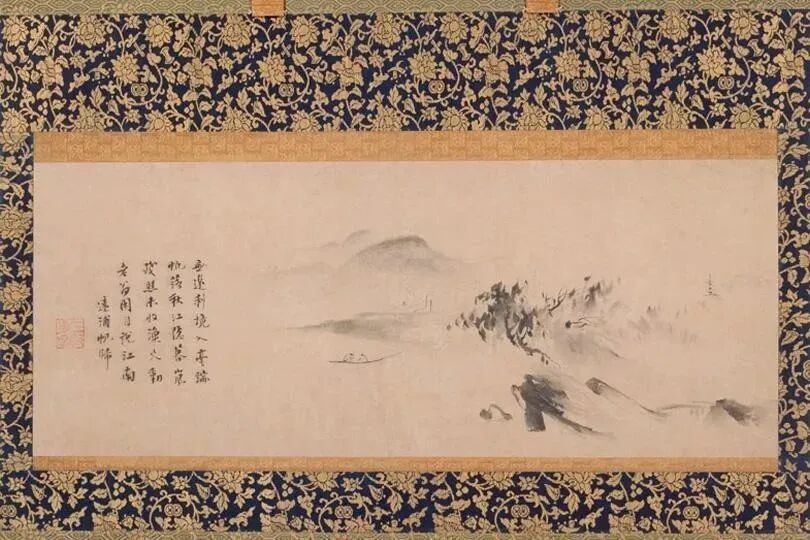 無邊刹境入毫端
帆落秋江隱暮嵐
殘照未收漁火動
老翁閑自說江南
遠浦帆歸